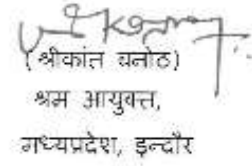 (श्रीकांत बनोठ)
श्रम आयुक्त,
मध्यप्रदेश, इन्दौर